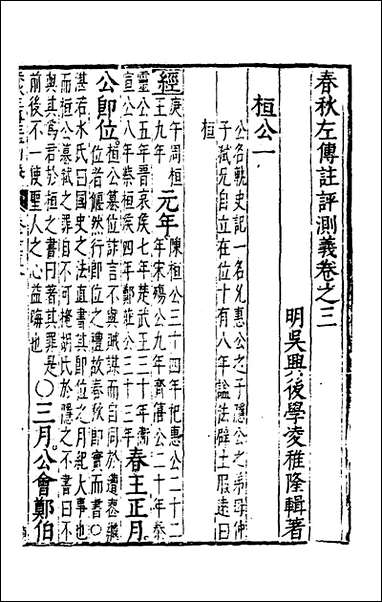 春秋左傳註評測義卷之三
明吳興後學凌稚隆輯著
桓公一
公名軌史記一名允惠公之子隱公之弟母仲
子弒兄自立在位十有八年謚法辟土服遠曰
桓
經
庚午周桓
王九年
元年
陳桓公三十四年杞惠公二十二
年宋殤公九年齊僖公二十年秦
靈公五年晉哀侯七年楚武王三十年衛
宣公八年蔡桓侯四年鄭莊公三十三年
春王正月
公即位
桓公篡位詐言不與賊謀而自同於遭喪繼
位者儼然行即位之禮故春秋即實而書○
湛若水氏曰國史之法直書其即位之月紀大事也
而桓公篡弒之罪自不可掩胡氏於隱之不書曰不
與其為君於桓之書曰著其罪是
前後不一使聖人之心益晦也
○三月公會鄭伯